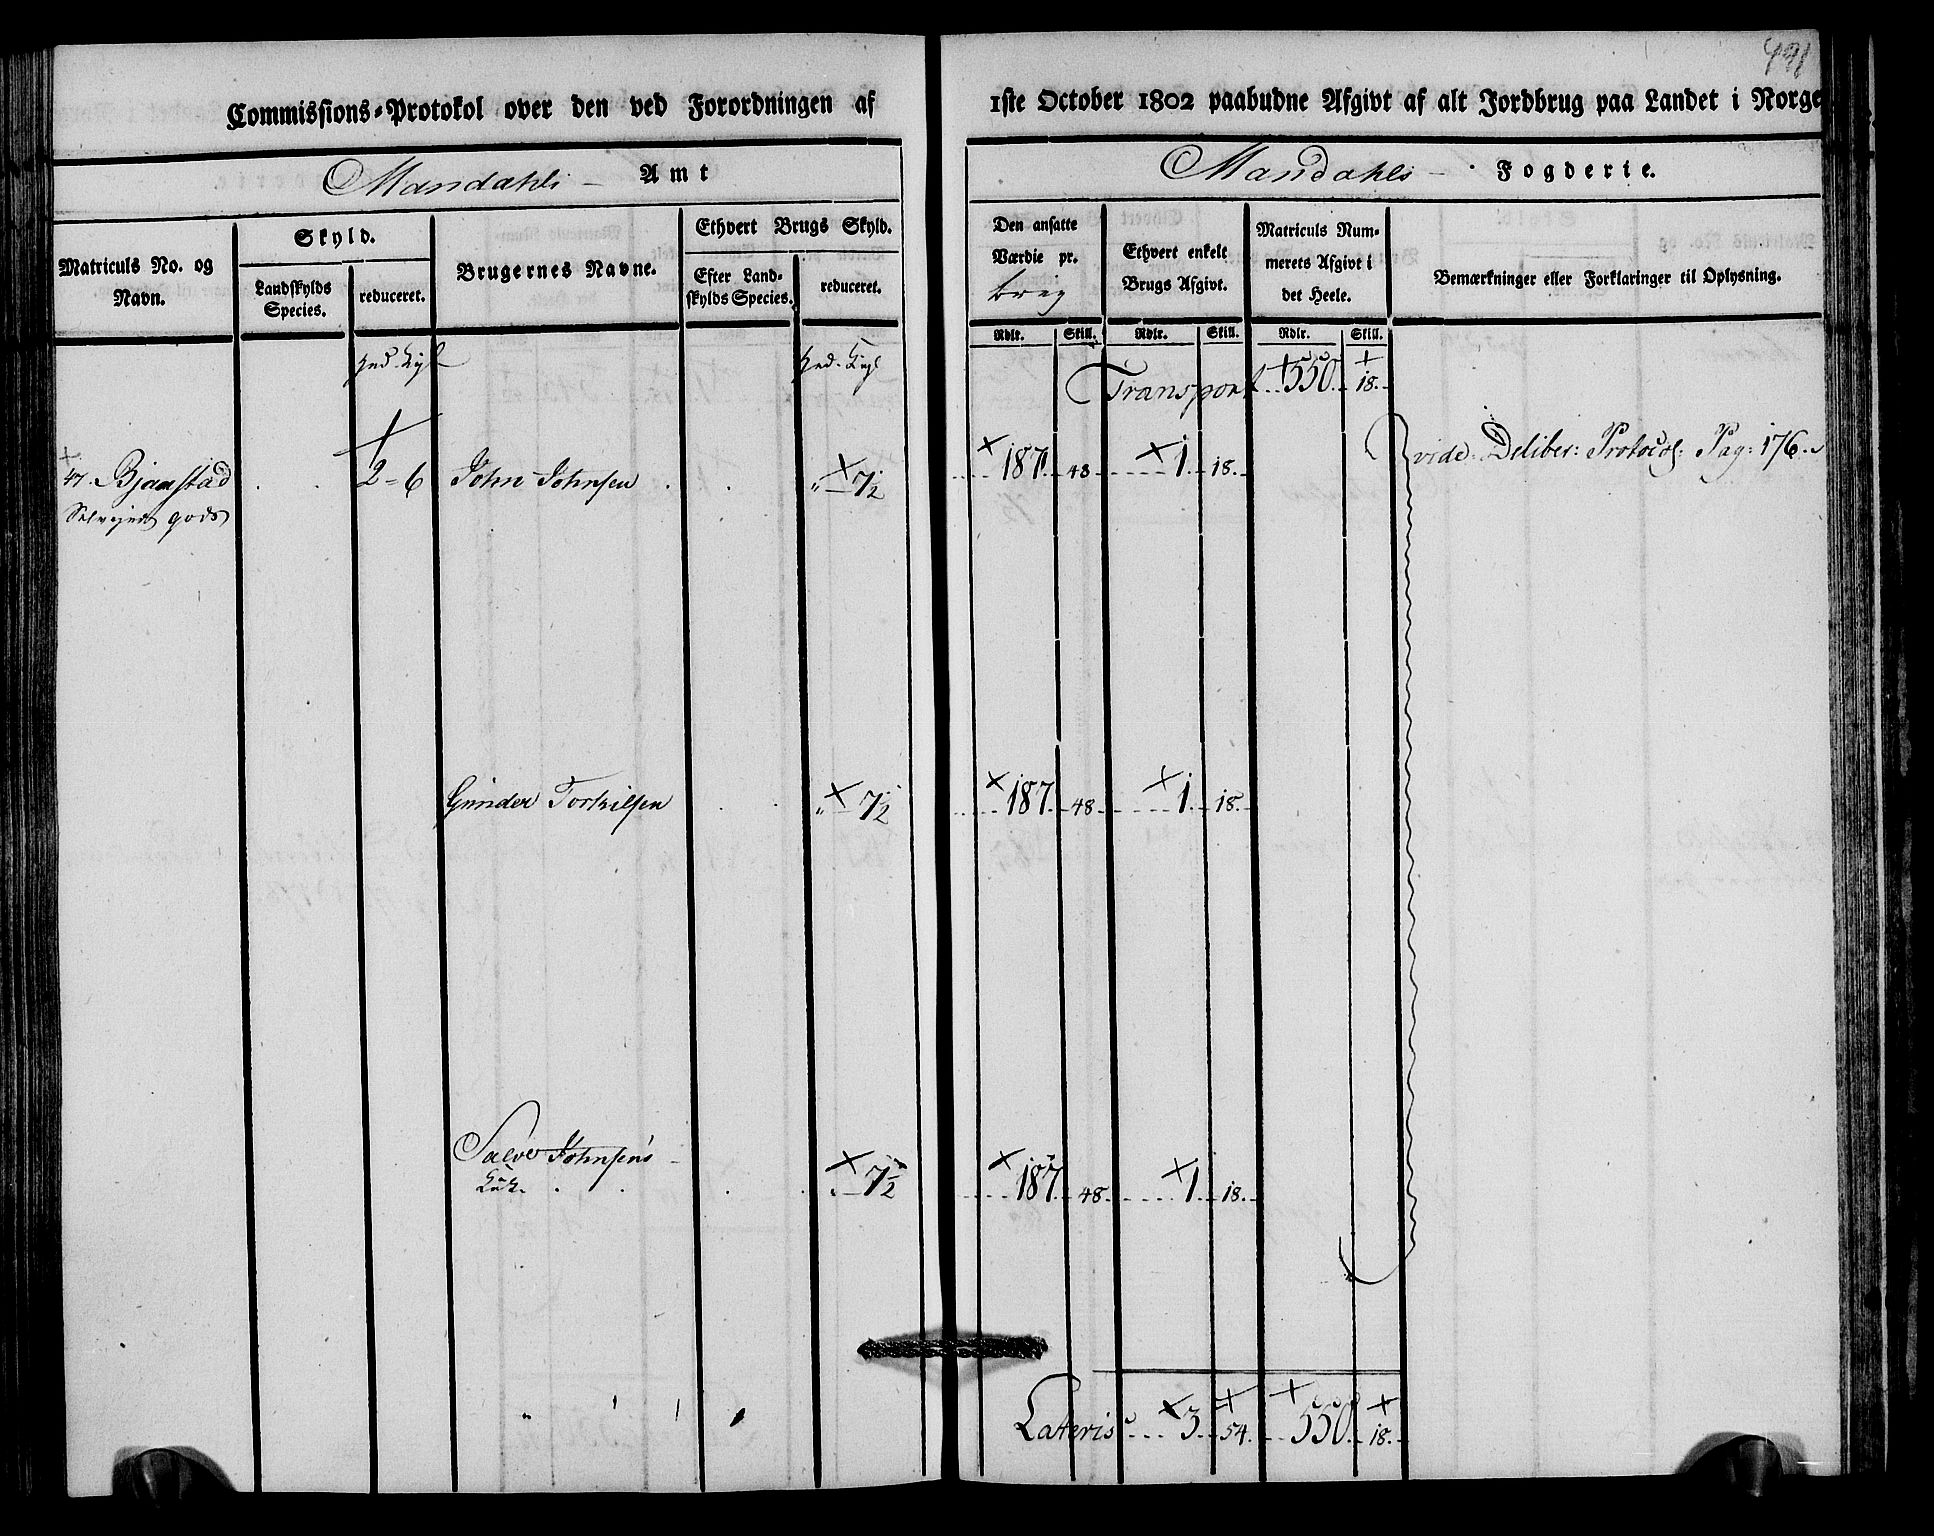 Commissions-Protokol over den ved Forordningen af 1ste October 1802 paabudne Afgivt af alt Jordbrug paa Landet i Norge
Mandahls Amt
Mandahls Fogderie.
Matriculs No. og Navn.
Skyld.
Landskylds Species.
reduceret.
Brugernes Navne.
Ethvert Brugs Skyld.
Efter Landskylds Species.
reduceret.
Den ansatte Værdie pr. brug
Ethvert enkelt Brugs Afgivt.
Matriculs Nummerets Afgivt i det Heele.
Bemærkninger eller Forklaringer til Oplysning.
Rdlr. Skill. Rdlr. Skill. Rdlr. Skill.
Transport 550 18
47. Bjaastad 2 - 6 John Johnsen " 7½ 187 48 1 18 vide Deliber: Protocol: Pag: 176
Selvejende gods
Gunder Torkilsen " 7½ 187 48 1 18
Salve Johnsens 7½ 187 48 1 18
Lateris 3 54 550 18